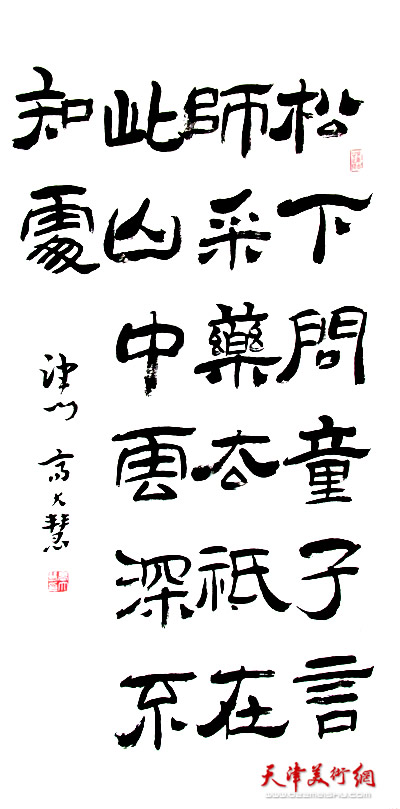 松下問童子言
師采藥去祇在
此山中雲深不
知處
津門 高大慧
天津美術網